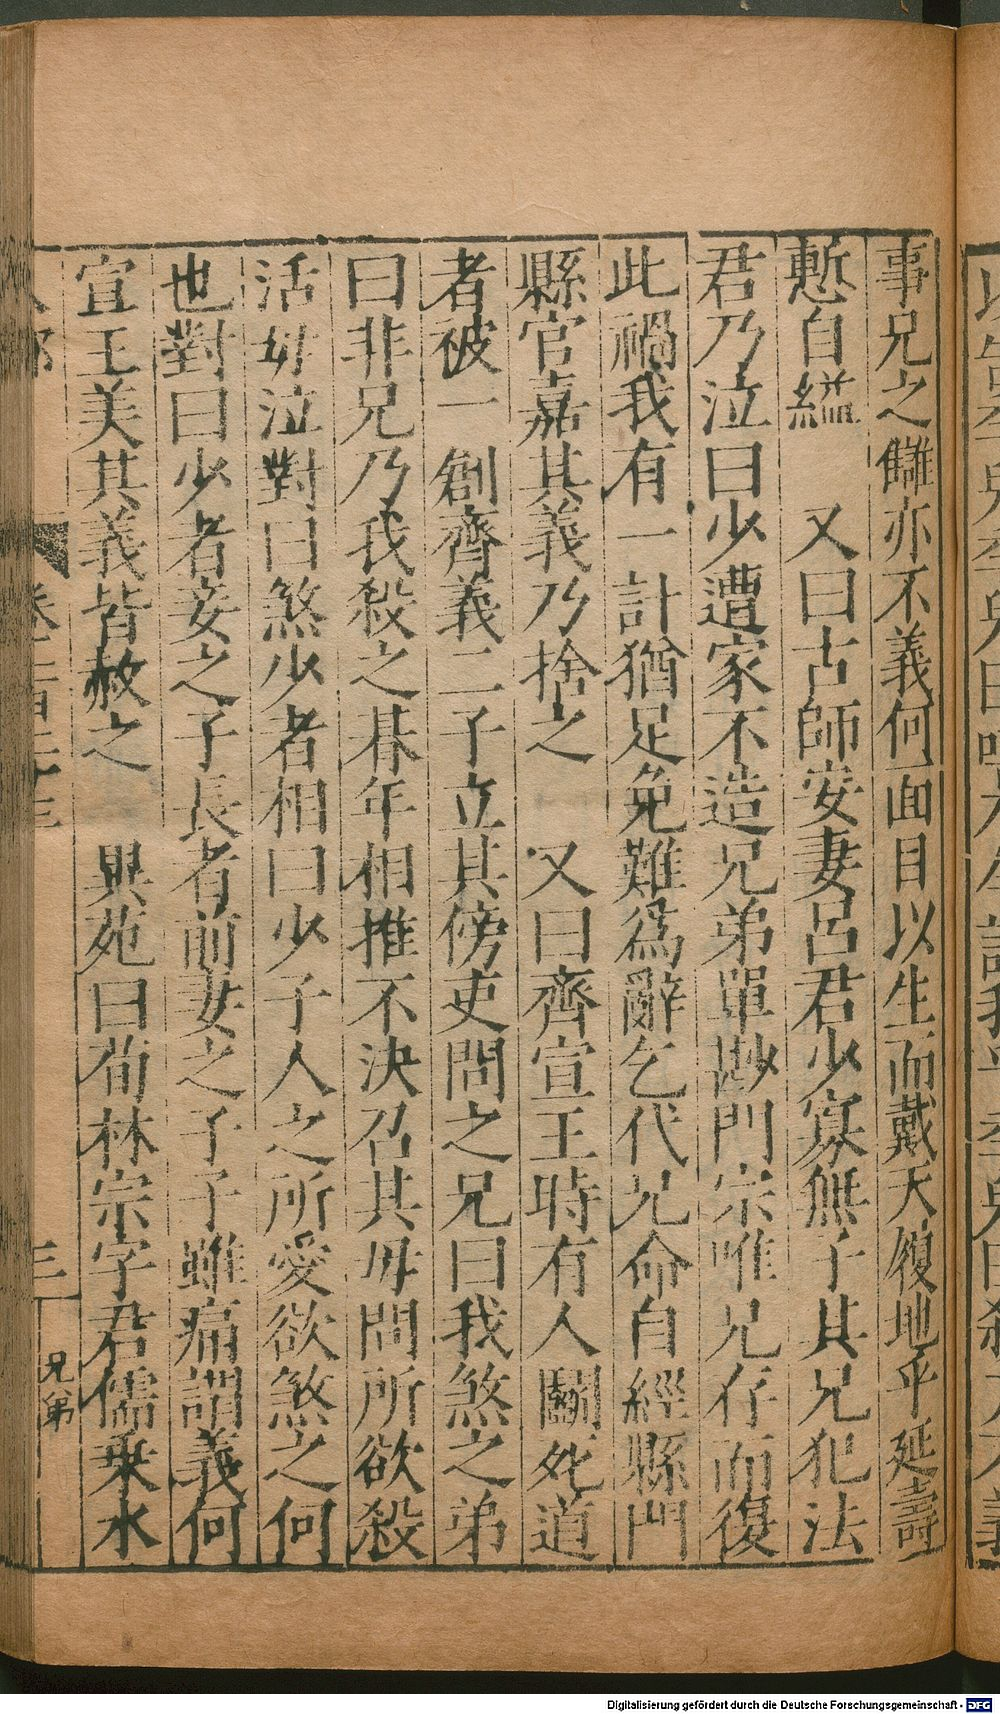 事兄之讎亦不義何面目以生而戴天履地乎延壽
慙自縊　又曰古師安妻呂君少寡無子其兄犯法
君乃泣曰少遭家不造兄弟單尠門宗唯兄存而復
此禍我有一計猶足免難爲辭乞代兄命自經縣門
縣官嘉其義乃捨之　又曰齊宣王時有人鬭死道
者被一創齊義二子立其傍吏問之兄曰我煞之弟
曰非兄乃我殺之朞年相推不決召其母問所欲殺
活母泣對曰煞少者相曰少子人之所愛欲煞之何
也對曰少者妾之子長者前妻之子子雖痛謂義何
宣王美其義皆赦之　異苑曰荀林宗字君儒乗水
三
兄弟
Digitalisierung gefördert durch die Deutsche Forschungsgemeinschaft - DFG